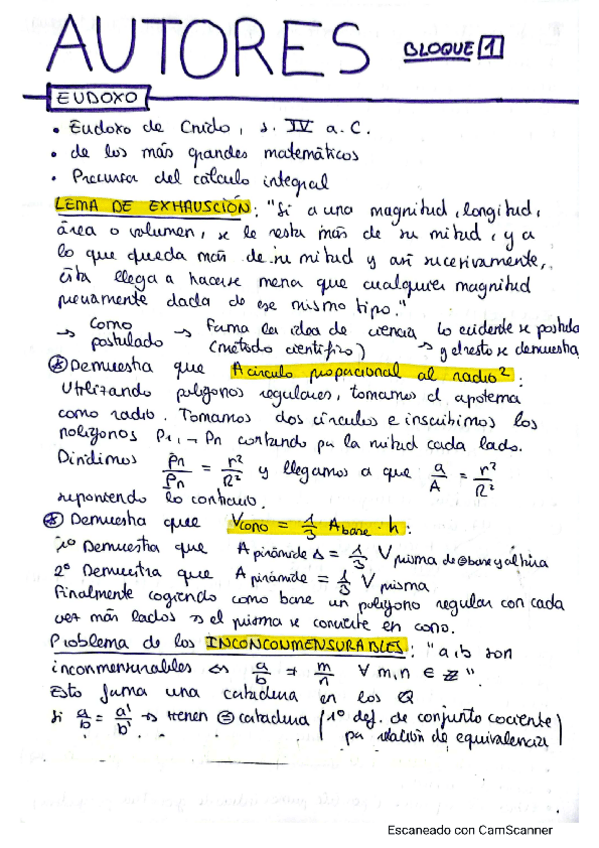 AUTORES BLOQUE 1
EUDOXO
• Eudoxo de Cnido, s. IV a.C.
• de los más grandes matemáticos
• Precursor del cálculo integral
LEMA DE EXHAUSCIÓN: "Si a una magnitud, longitud,
área o volumen, se le resta más de su mitad, y a
lo que queda más de su mitad y así sucesivamente,
ésta llega a hacerse menor que cualquier magnitud
previamente dada de ese mismo tipo."
→ Como postulado → Forma la idea de ciencia (método científico) lo evidente se postula → y el resto se demuestra
⊛ Demuestra que A círculo proporcional al radio²:
Utilizando polígonos regulares, tomamos el apotema
como radio. Tomamos dos círculos e inscribimos los
polígonos P1, → Pn cortando por la mitad cada lado.
Dividimos pn/Pn = r²/R² y llegamos a que a/A = r²/R²
suponiendo lo contrario.
⊛ Demuestra que Vcono = 1/3 Abase · h:
1º Demuestra que A pirámide Δ = 1/3 V prisma de = base y altura
2º Demuestra que A pirámide = 1/3 V prisma
Finalmente cogiendo como base un polígono regular con cada
vez más lados → el prisma se convierte en cono.
Problema de los INCONCONMENSURABLES: "a, b son
inconmensurables ⇔ a/b ≠ m/n ∀ m, n ∈ Z"
Esto forma una cortadura en los Q
Si a/b = a'/b' → tienen = cortadura (1º def. de conjunto cociente
por relación de equivalencia)
Escaneado con CamScanner